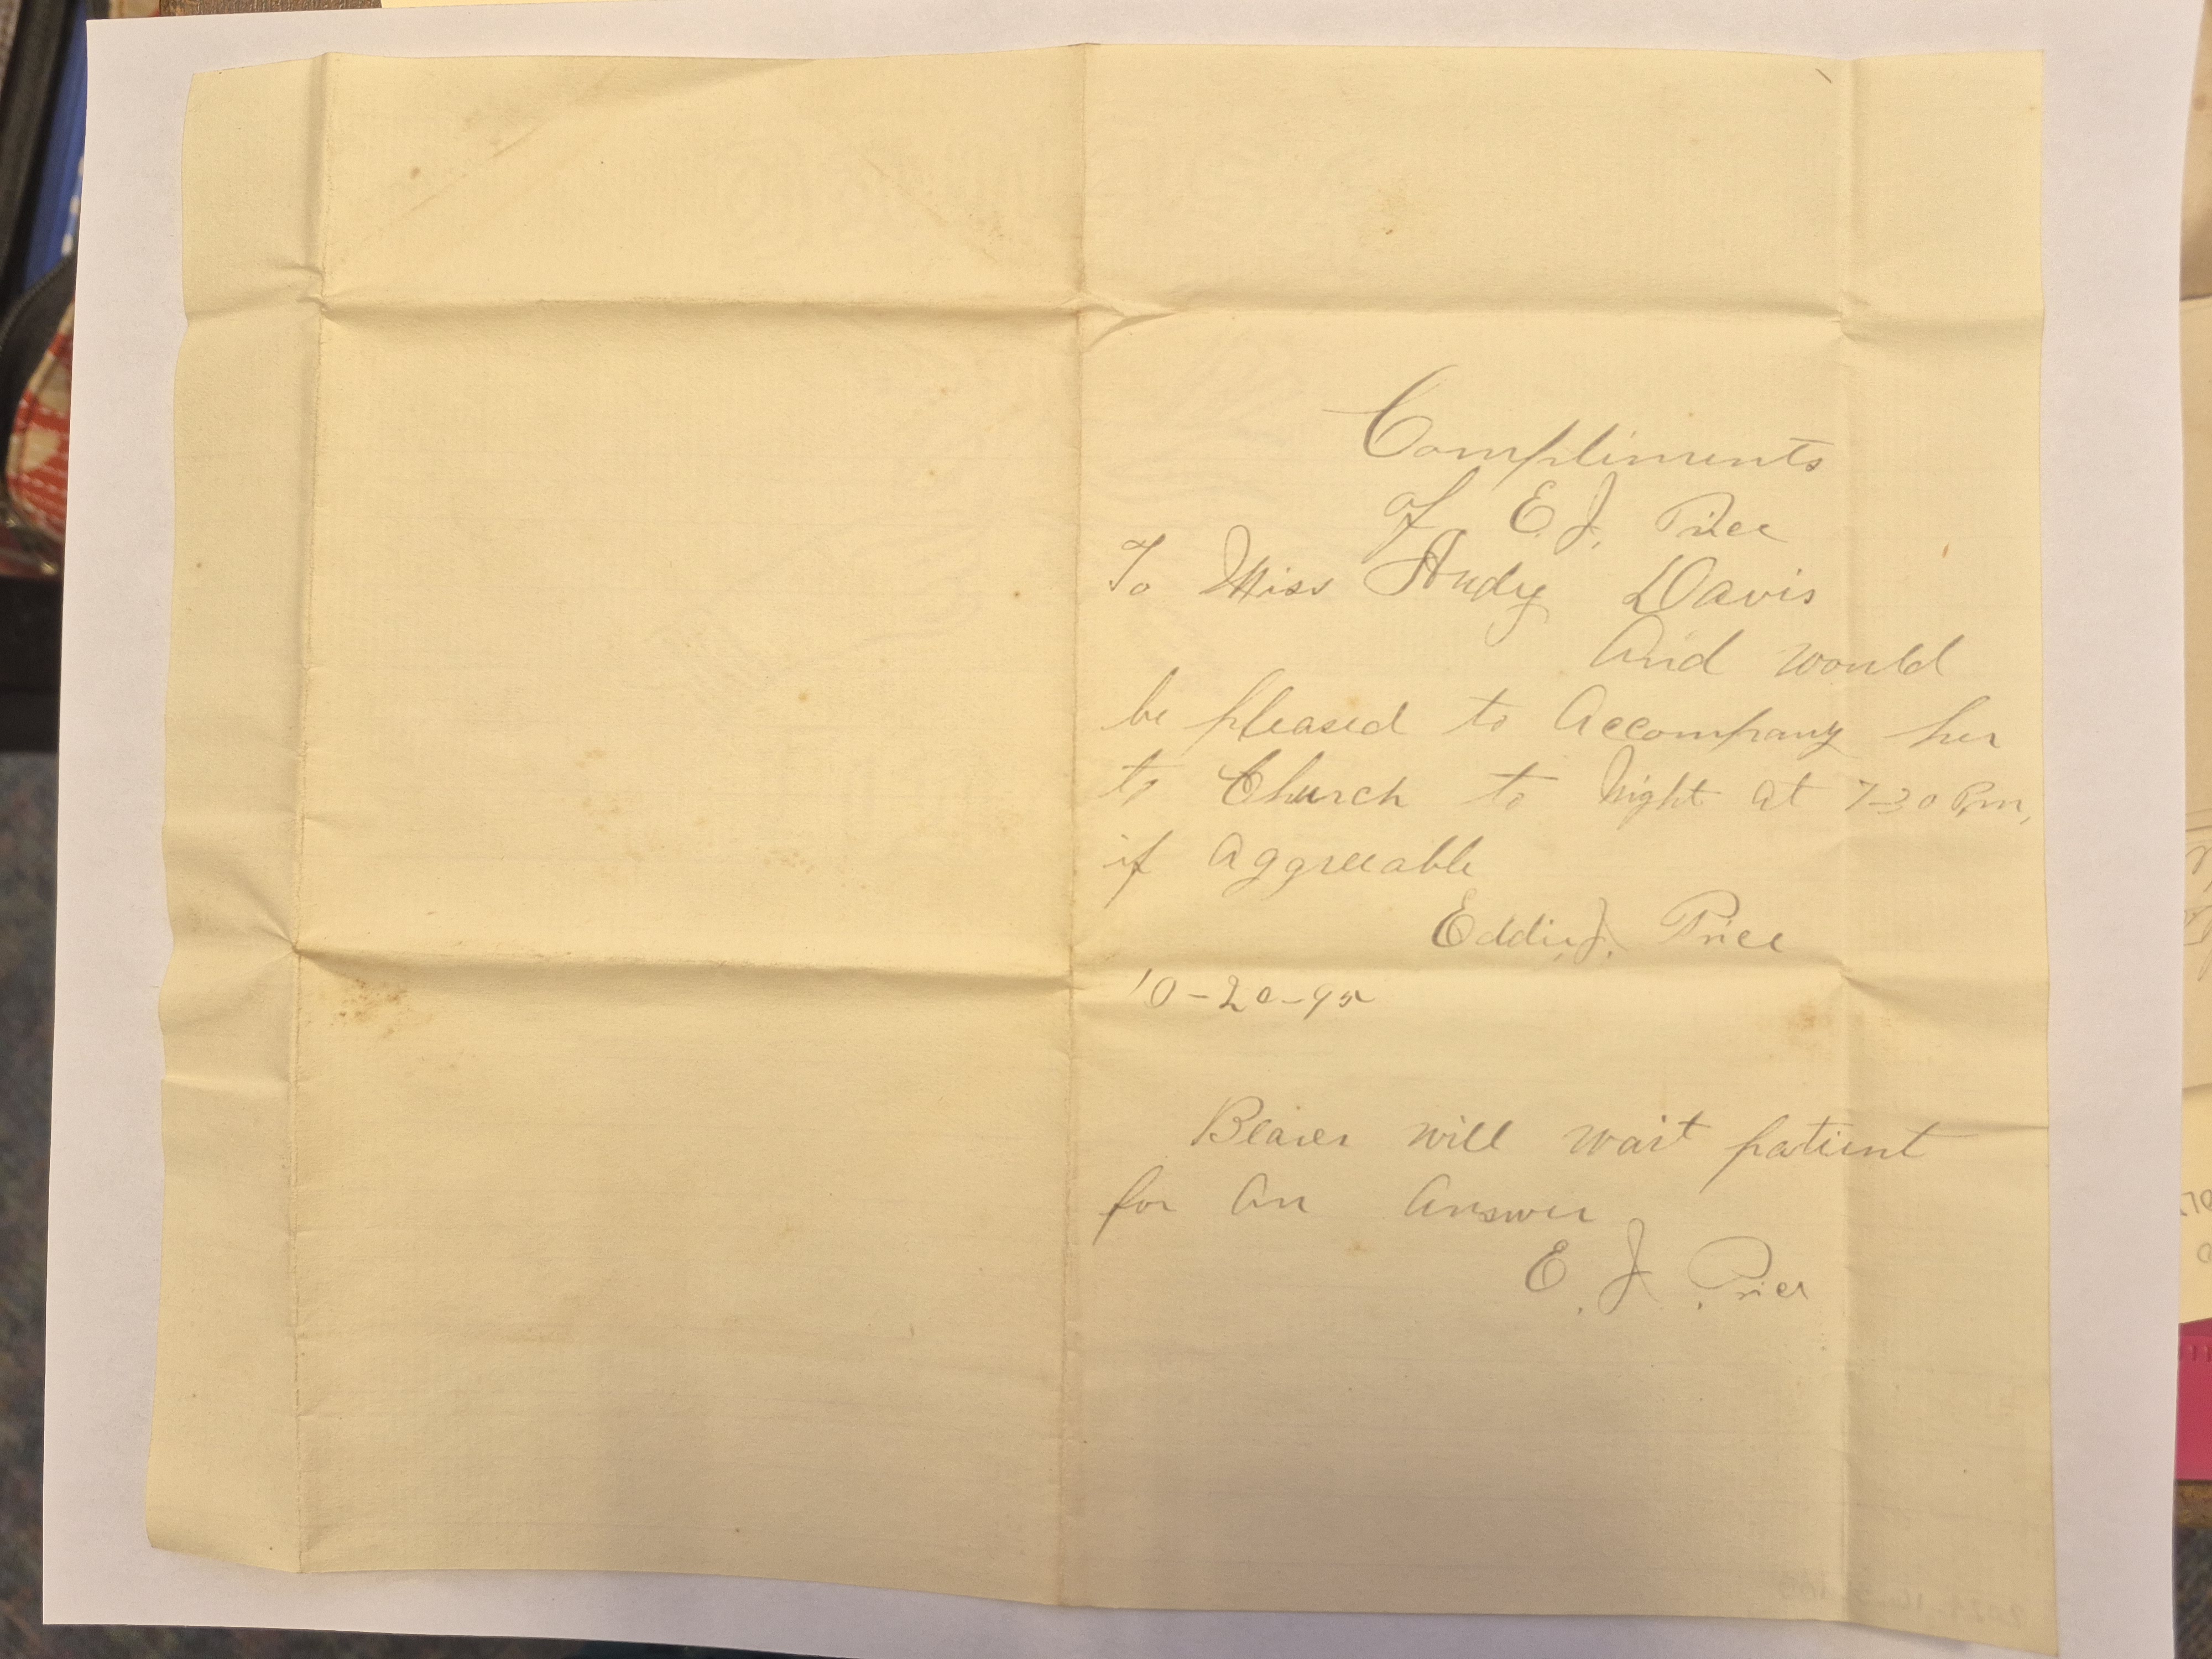 Compliments
of E. J. Price
To Miss Andy Davis
And would
be pleased to Accompany her
to Church to Night at 7-30 P.m,
if Aggreeable
Eddie J. Price
10-20-95
Bearer will wait patient
for An Answer
E. J. Price